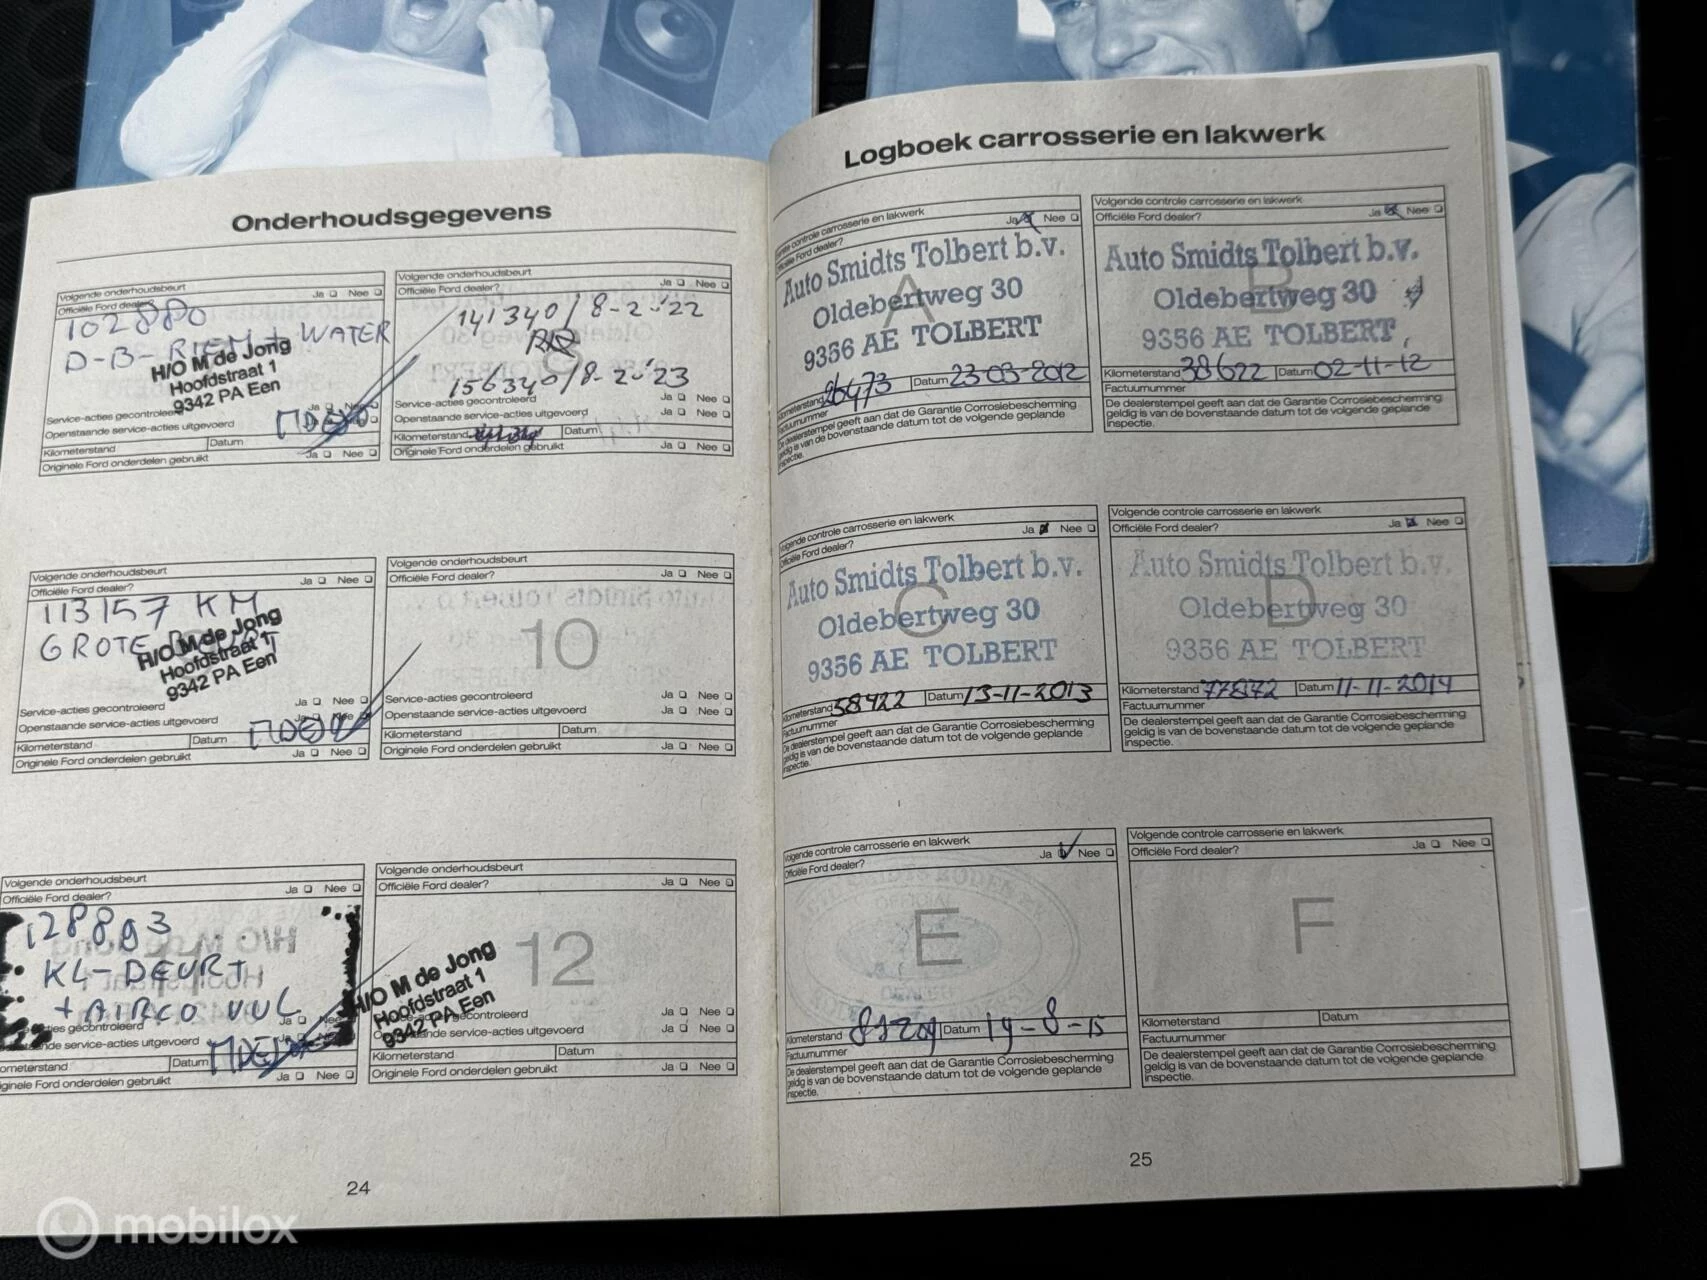 Onderhoudsgegevens
Volgende onderhoudsbeurt
Officiële Ford dealer? Ja Nee
102880
D-B-RIEM + WATER
H/O M de Jong
Hoofdstraat 1
9342 PA Een
Service-acties gecontroleerd Ja Nee
Openstaande service-acties uitgevoerd
Kilometerstand Datum
Originele Ford onderdelen gebruikt Ja Nee
Volgende onderhoudsbeurt
Officiële Ford dealer? Ja Nee
141340/8-2-'22
156340/8-2-'23
Service-acties gecontroleerd Ja Nee
Openstaande service-acties uitgevoerd Ja Nee
Kilometerstand Datum
Originele Ford onderdelen gebruikt Ja Nee
Volgende onderhoudsbeurt
Officiële Ford dealer? Ja Nee
113157 KM
GROTE BEURT
H/O M de Jong
Hoofdstraat 1
9342 PA Een
Service-acties gecontroleerd Ja Nee
Openstaande service-acties uitgevoerd Ja Nee
Kilometerstand Datum
Originele Ford onderdelen gebruikt Ja Nee
Volgende onderhoudsbeurt
Officiële Ford dealer? Ja Nee
10
Service-acties gecontroleerd Ja Nee
Openstaande service-acties uitgevoerd Ja Nee
Kilometerstand Datum
Originele Ford onderdelen gebruikt Ja Nee
Volgende onderhoudsbeurt
Officiële Ford dealer? Ja Nee
128893
KL-BEURT
+ AIRCO VUL
gecontroleerd Ja Nee
service-acties uitgevoerd
Datum
Ford onderdelen gebruikt Ja Nee
Volgende onderhoudsbeurt
Officiële Ford dealer? Ja Nee
12
H/O M de Jong
Hoofdstraat 1
9342 PA Een
gecontroleerd Ja Nee
service-acties uitgevoerd Ja Nee
Kilometerstand Datum
Originele Ford onderdelen gebruikt Ja Nee
24
Logboek carrosserie en lakwerk
Volgende controle carrosserie en lakwerk
Officiële Ford dealer? Ja Nee
A
Auto Smidts Tolbert b.v.
Oldebertweg 30
9356 AE TOLBERT
Kilometerstand 26473 Datum 23-03-2012
Factuurnummer
De dealerstempel geeft aan dat de Garantie Corrosiebescherming
geldig is van de bovenstaande datum tot de volgende geplande
inspectie.
Volgende controle carrosserie en lakwerk
Officiële Ford dealer? Ja Nee
B
Auto Smidts Tolbert b.v.
Oldebertweg 30
9356 AE TOLBERT
Kilometerstand 38622 Datum 02-11-12
Factuurnummer
De dealerstempel geeft aan dat de Garantie Corrosiebescherming
geldig is van de bovenstaande datum tot de volgende geplande
inspectie.
Volgende controle carrosserie en lakwerk
Officiële Ford dealer? Ja Nee
C
Auto Smidts Tolbert b.v.
Oldebertweg 30
9356 AE TOLBERT
Kilometerstand 58422 Datum 13-11-2013
Factuurnummer
De dealerstempel geeft aan dat de Garantie Corrosiebescherming
geldig is van de bovenstaande datum tot de volgende geplande
inspectie.
Volgende controle carrosserie en lakwerk
Officiële Ford dealer? Ja Nee
D
Auto Smidts Tolbert b.v.
Oldebertweg 30
9356 AE TOLBERT
Kilometerstand 77872 Datum 11-11-2014
Factuurnummer
De dealerstempel geeft aan dat de Garantie Corrosiebescherming
geldig is van de bovenstaande datum tot de volgende geplande
inspectie.
Volgende controle carrosserie en lakwerk
Officiële Ford dealer? Ja Nee
E
Kilometerstand Datum 19-8-15
Factuurnummer
De dealerstempel geeft aan dat de Garantie Corrosiebescherming
geldig is van de bovenstaande datum tot de volgende geplande
inspectie.
Volgende controle carrosserie en lakwerk
Officiële Ford dealer? Ja Nee
F
Kilometerstand Datum
Factuurnummer
De dealerstempel geeft aan dat de Garantie Corrosiebescherming
geldig is van de bovenstaande datum tot de volgende geplande
inspectie.
25
mobilox